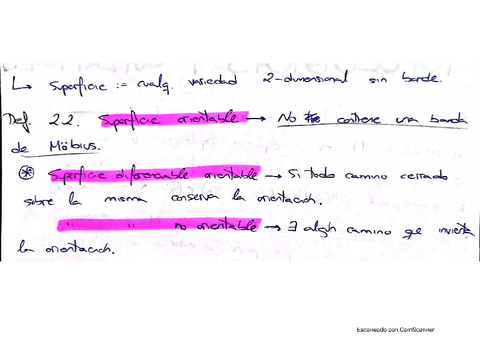 ↳ Superficie := cualq. variedad 2-dimensional sin borde.
Def. 2.2. Superficie orientable → No contiene una banda
de Möbius.
* Superficie diferenciable orientable → Si todo camino cerrado
sobre la misma conserva la orientación.
" " no orientable → ∃ algún camino qe invierta
la orientación.
Escaneado con CamScanner